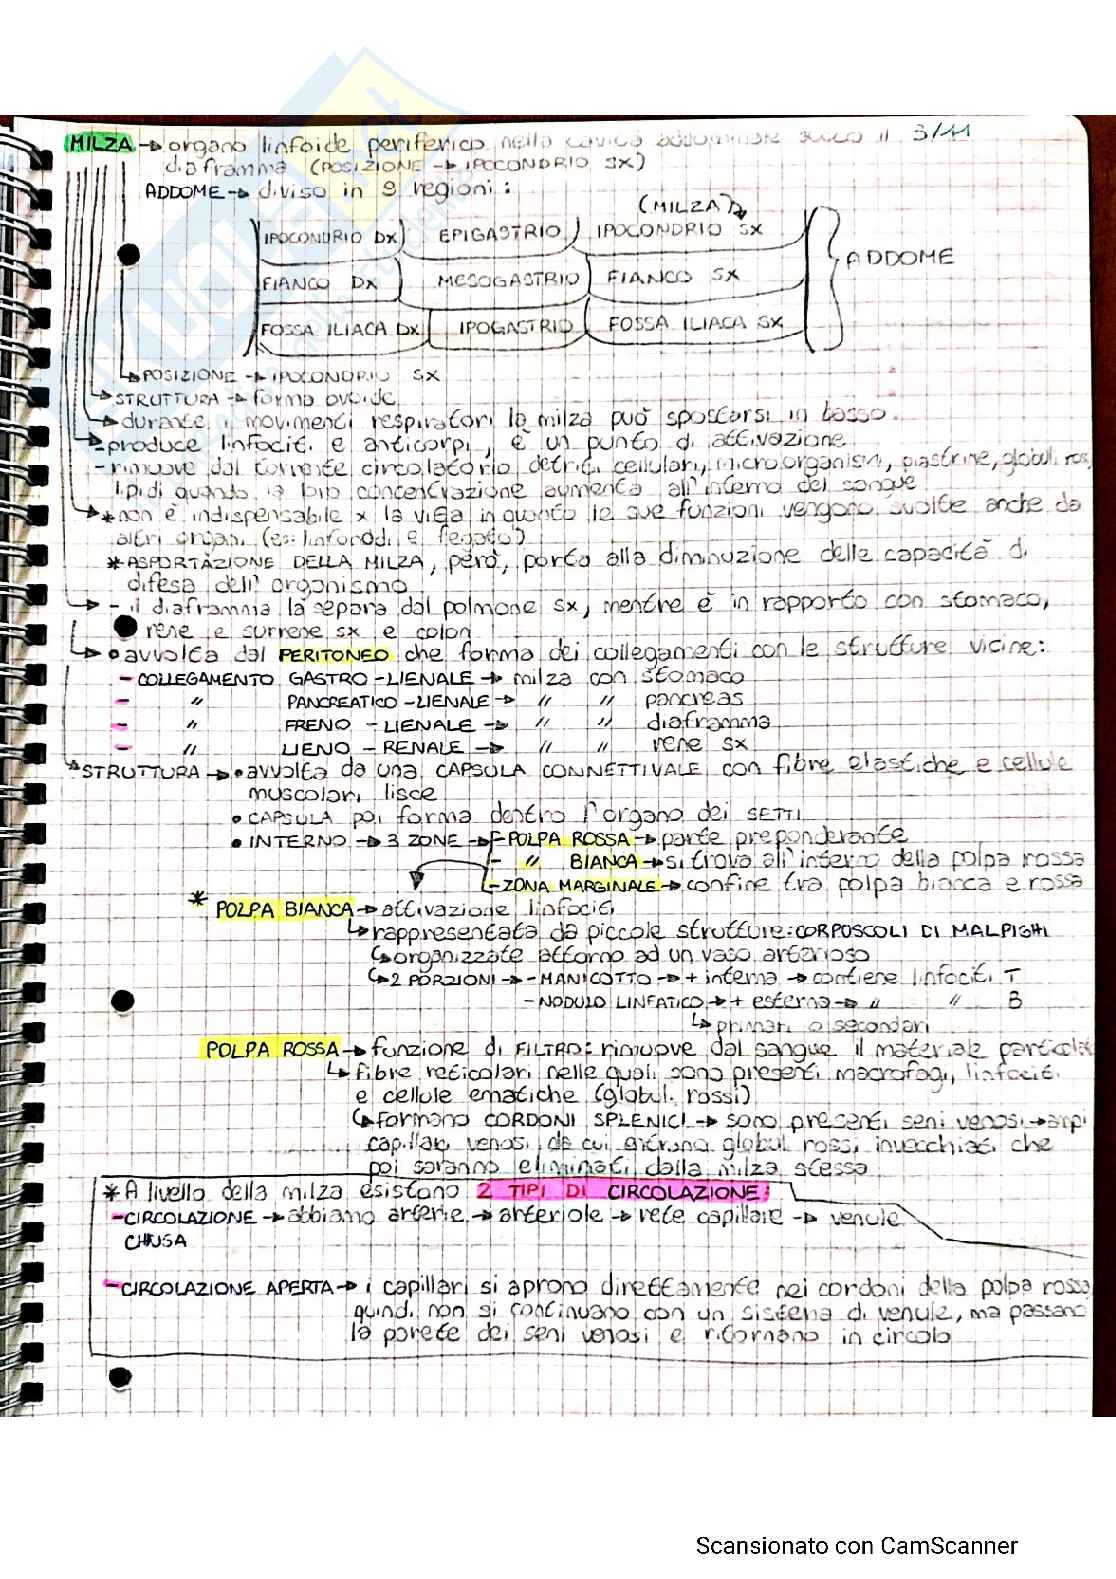 3/11
MILZA → organo linfoide periferico nella cavità addominale sotto il
diaframma (POSIZIONE → IPOCONDRIO SX)
ADDOME → diviso in 9 regioni:
(MILZA)
IPOCONDRIO DX EPIGASTRIO IPOCONDRIO SX
FIANCO DX MESOGASTRIO FIANCO SX
FOSSA ILIACA DX IPOGASTRIO FOSSA ILIACA SX
ADDOME
POSIZIONE → IPOCONDRIO SX
STRUTTURA → forma ovoide
durante i movimenti respiratori la milza può spostarsi in basso.
produce linfociti e anticorpi, è un punto di attivazione
- rimuove dal torrente circolatorio detriti cellulari, microrganismi, piastrine, globuli ros
lipidi quando la loro concentrazione aumenta all'interno del sangue
* non è indispensabile x la vita in quanto le sue funzioni vengono svolte anche da
altri organi (es: linfonodi e fegato)
* ASPORTAZIONE DELLA MILZA, però, porta alla diminuzione delle capacità di
difesa dell'organismo
- il diaframma la separa dal polmone sx, mentre è in rapporto con stomaco,
rene e surrene sx e colon
• avvolta dal PERITONEO che forma dei collegamenti con le strutture vicine:
- COLLEGAMENTO GASTRO-LIENALE → milza con stomaco
- " PANCREATICO-LIENALE → " " pancreas
- " FRENO-LIENALE → " " diaframma
- " LIENO-RENALE → " " rene sx
STRUTTURA → • avvolta da una CAPSULA CONNETTIVALE con fibre elastiche e cellule
muscolari lisce
• CAPSULA poi forma dentro l'organo dei SETTI
• INTERNO → 3 ZONE → - POLPA ROSSA → parte preponderante
- " BIANCA → si trova all'interno della polpa rossa
- ZONA MARGINALE → confine tra polpa bianca e rossa
* POLPA BIANCA → attivazione linfociti
↳ rappresentata da piccole strutture: CORPUSCOLI DI MALPIGHI
↳ organizzate attorno ad un vaso arterioso
↳ 2 PORZIONI → - MANICOTTO → + interna → contiene linfociti T
- NODULO LINFATICO → + esterna → " " B
↳ primari o secondari
POLPA ROSSA → funzione di FILTRO: rimuove dal sangue il materiale particolat
↳ fibre reticolari nelle quali sono presenti macrofagi, linfociti
e cellule ematiche (globuli rossi)
↳ formano CORDONI SPLENICI → sono presenti seni venosi → ampi
capillari venosi da cui entrano globuli rossi invecchiati che
poi saranno eliminati dalla milza stessa
* A livello della milza esistono 2 TIPI DI CIRCOLAZIONE:
- CIRCOLAZIONE → abbiamo arterie → arteriole → rete capillare → venule
CHIUSA
- CIRCOLAZIONE APERTA → i capillari si aprono direttamente nei cordoni della polpa rossa
quindi non si continuano con un sistema di venule, ma passano
la parete dei seni venosi e ritornano in circolo
Scansionato con CamScanner